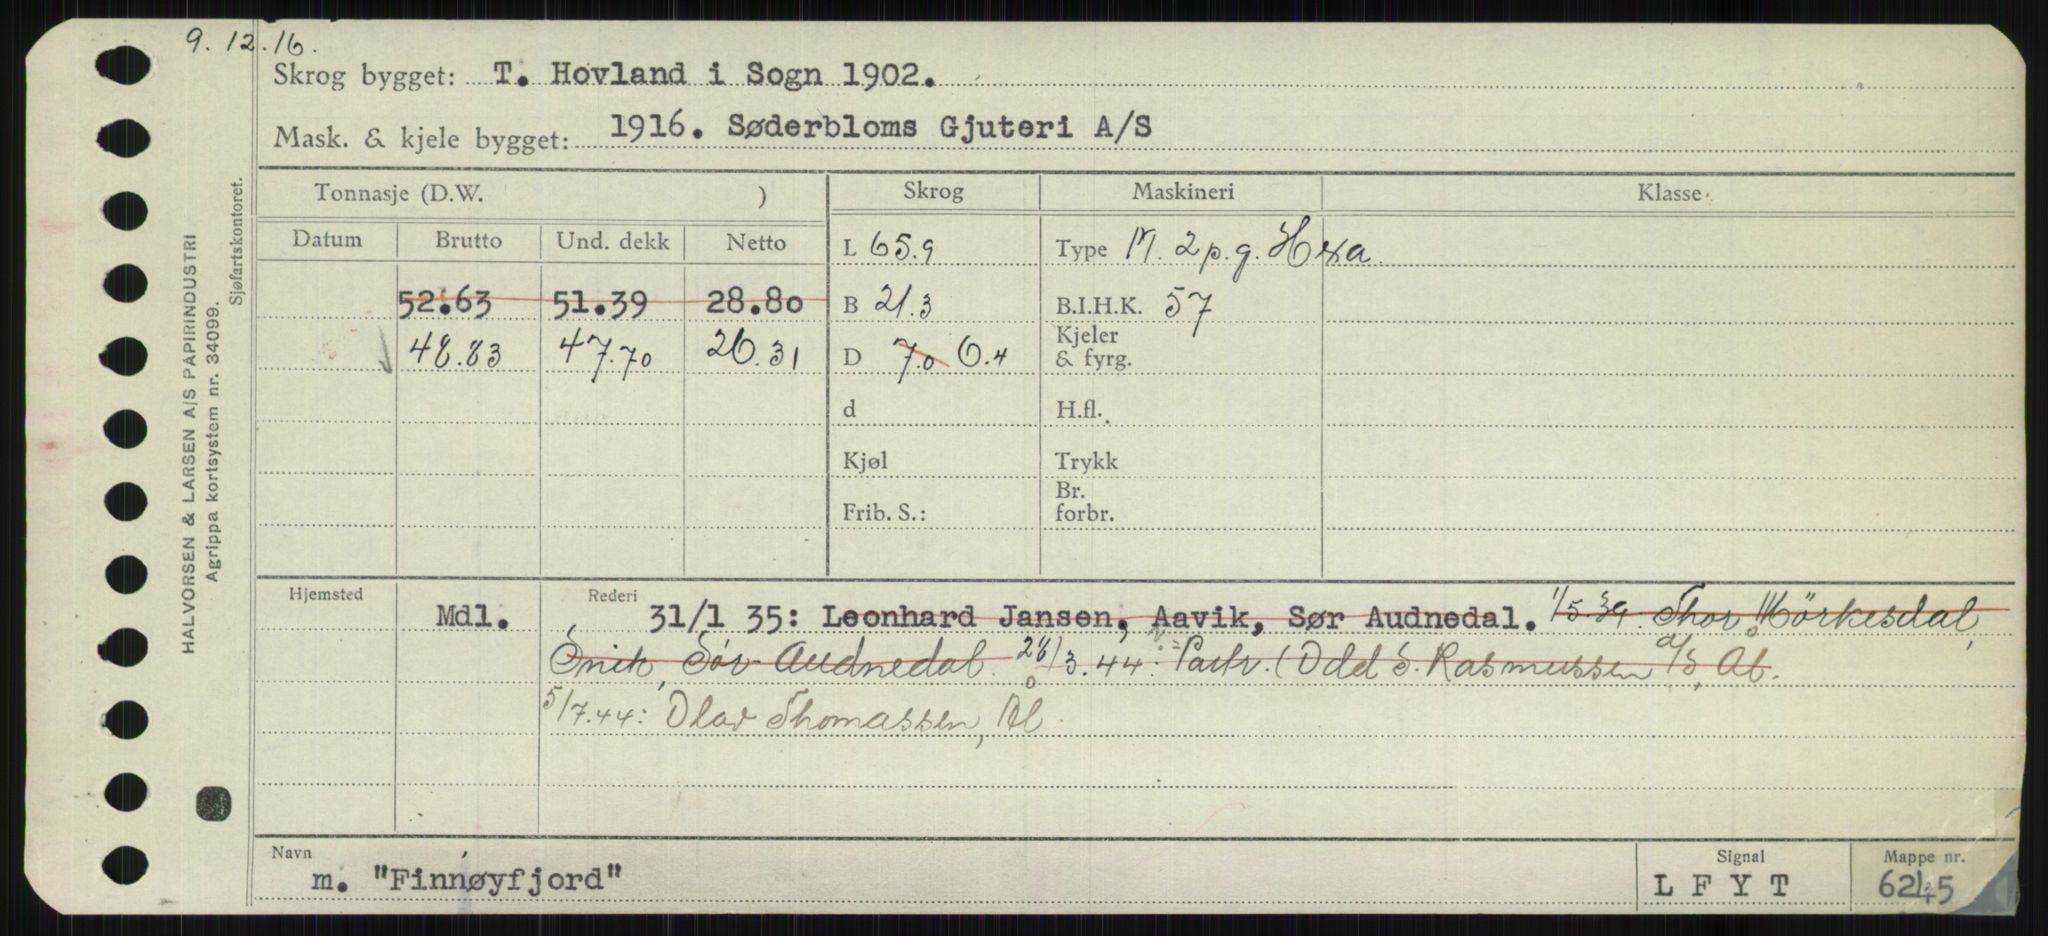 9.12.16.
Skrog bygget: T. Hovland i Sogn 1902.
Mask. & kjele bygget: 1916. Søderbloms Gjuteri A/S
HALVORSEN & LARSEN A/S PAPIRINDUSTRI
Agrippa kortsystem nr. 34099.
Sjøfartskontoret.
Tonnasje (D.W. ) Skrog Maskineri Klasse
Datum Brutto Und. dekk Netto
L 65.9 Type M. 2 p.g. Hexa
52.63 51.39 28.80 B 21.3 B.I.H.K. 57
48.83 47.70 26.31 D 7.0 6.4 Kjeler & fyrg.
d H.fl.
Kjøl Trykk
Frib. S.: Br. forbr.
Hjemsted Rederi
Mdl. 31/1 35: Leonhard Jansen, Aavik, Sør Audnedal. 1/5.39. Thor Mörkesdal,
Snik, Sör Audnedal. 28/3.44: Partr. (Odd S. Rasmussen A/S, Ål.
5/7.44: Olav Thomassen, Ål.
Navn Signal Mappe nr.
m. "Finnøyfjord" L F Y T 6245